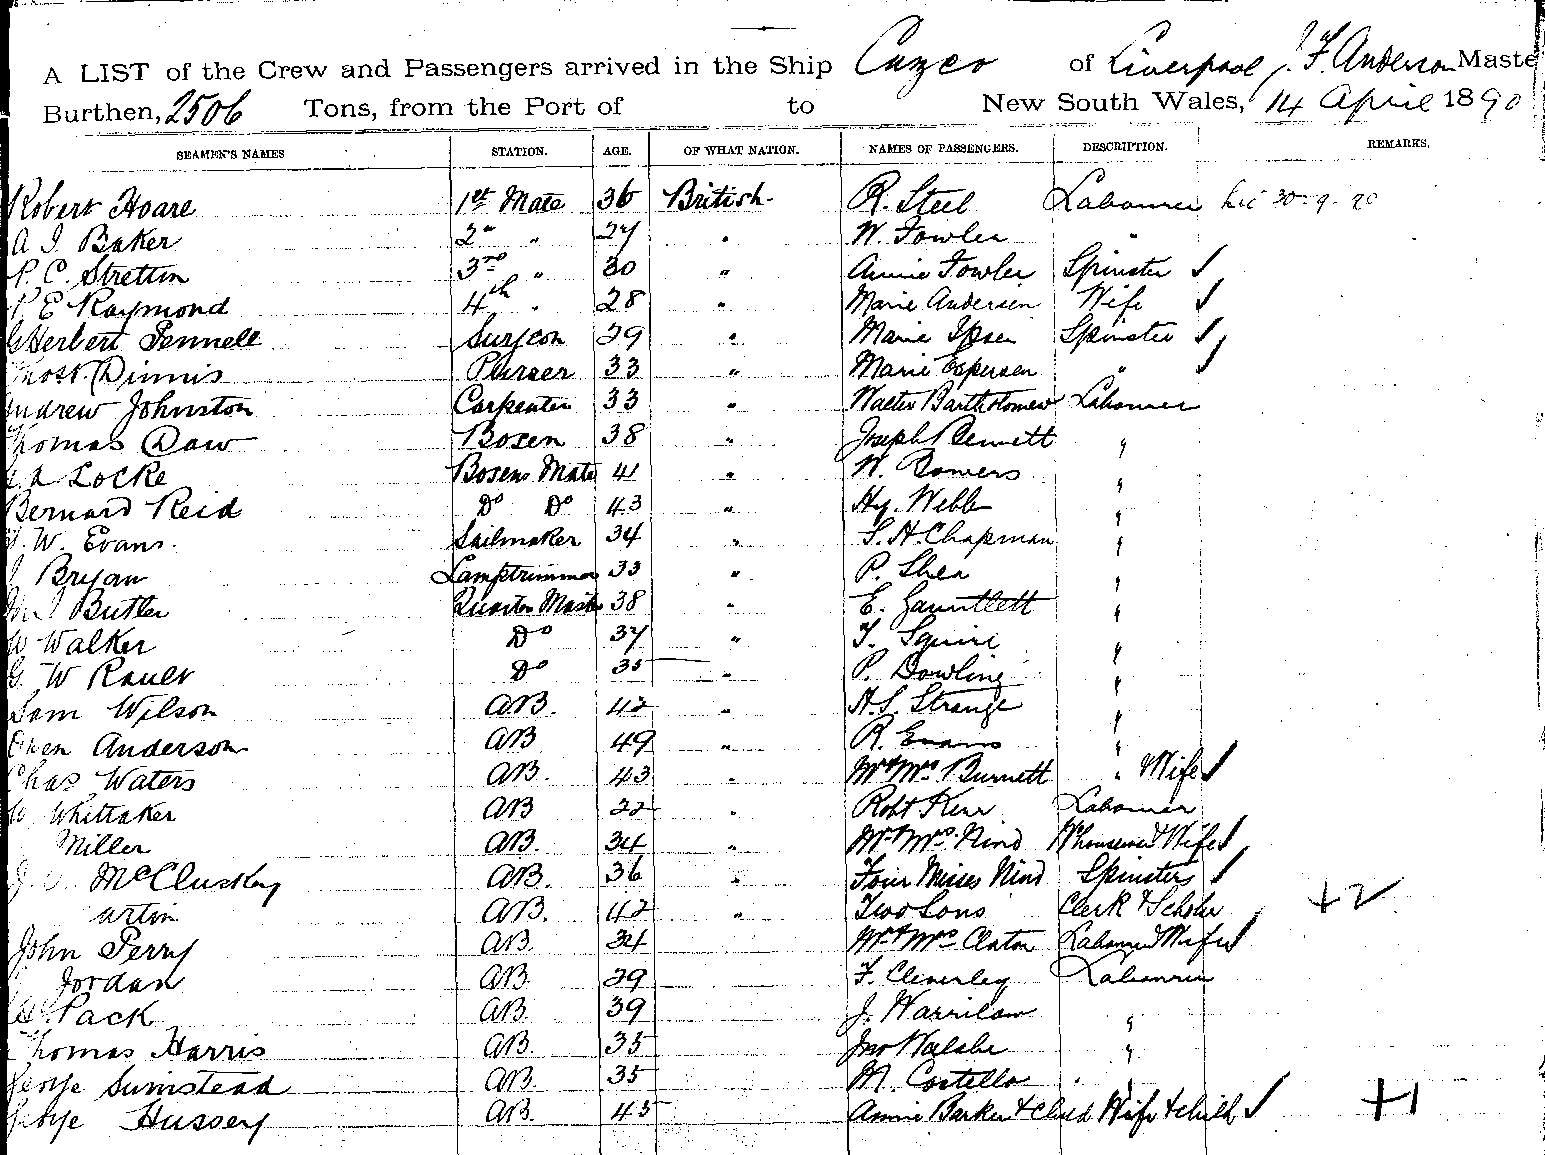 A LIST of the Crew and Passengers arrived in the Ship Cuzco of Liverpool, J. F. Anderson Maste
Burthen, 2506 Tons, from the Port of to New South Wales, 14 April 1890
SEAMEN'S NAMES STATION. AGE. OF WHAT NATION. NAMES OF PASSENGERS. DESCRIPTION. REMARKS.
Robert Hoare 1st Mate 36 British R. Steel Labourer 30-9-90
A J Baker 2nd " 27 " W. Fowler "
P. C. Stretton 3rd " 30 " Annie Fowler Spinster ✓
P E Raymond 4th " 28 " Marie Andersen Wife ✓
Herbert Fennell Surgeon 29 " Marie Ipsen Spinster ✓
Dinnis Purser 33 " Marie Espersen " ✓
Andrew Johnston Carpenter 33 " Walter Bartholomew Labourer
Thomas Daw Bosen 38 " Joseph Bennett "
Locke Bosens Mate 41 " W. Bowers "
Bernard Reid Do Do 43 " Hy. Webb "
W. Evans. Sailmaker 34 " S. H. Chapman "
J Bryan Lamptrimmer 33 " P. Shea "
Butler Quarter Master 38 " E. Gauntlett "
W Walker Do 37 " T. Squire "
G. W Rauer Do 35 " P. Dowling "
Sam Wilson AB. 42 " H. S. Strange "
Owen Anderson AB 49 " R. Evans "
Chas Waters AB. 43 " Mr & Mrs Burnett " Wife ✓
W Whittaker AB 22 " Robt Kerr Labourer
Miller AB. 34 " Mr & Mrs Nind W'houseman & Wife ✓
McCluskey AB. 36 " Four Misses Nind Spinsters ✓
artin AB. 42 " Two Sons Clerk & Scholar +2 ✓
John Perry AB. 34 Mr & Mrs Claton Labourer & Wife ✓
Jordan AB. 29 F. Cleverley Labourer
Pack AB. 39 J. Warrilow "
Thomas Harris AB. 35 Jno Walshe "
George Sumstead AB. 35 M. Costello "
George Hussey AB. 45 Annie Barker & Child Wife & child ✓ +1